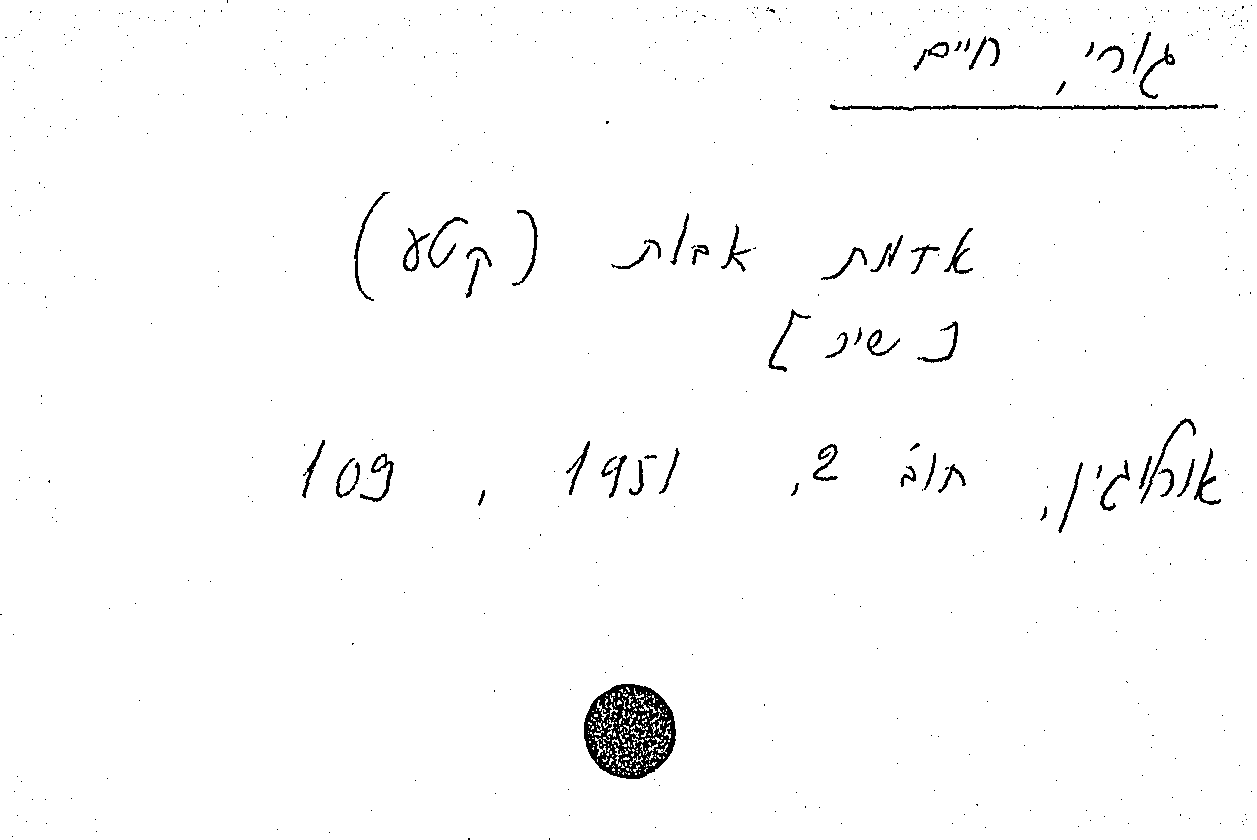 גורי, חיים
אדמת אבות (קטע)
[שיר]
אורלוגין, חוב' 2, 1951, 109